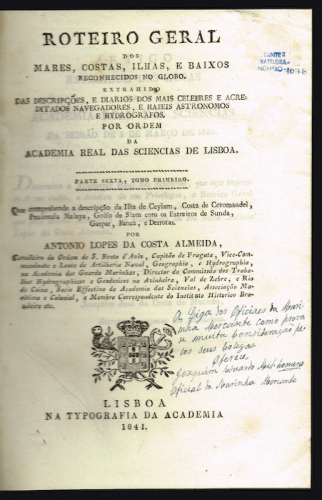 ROTEIRO GERAL
DOS
MARES, COSTAS, ILHAS, E BAIXOS
RECONHECIDOS NO GLOBO.
EXTRAHIDO
DAS DESCRIPÇÕES, E DIARIOS DOS MAIS CELEBRES E ACRE-
DITADOS NAVEGADORES, E HABEIS ASTRONOMOS
E HYDROGRAFOS.
POR ORDEM
DA
ACADEMIA REAL DAS SCIENCIAS DE LISBOA.
PARTE SEXTA, TOMO PRIMEIRO.
Que comprehende a descripção da Ilha de Ceylam, Costa de Coromandel,
Peninsula Malaya, Golfo de Siam com os Estreitos de Sunda,
Gaspar, Banca, e Derrotas.
POR
ANTONIO LOPES DA COSTA ALMEIDA,
Cavalleiro da Ordem de S. Bento d'Aviz, Capitão de Fragata, Vice-Com-
mandante e Lente de Artilheria Naval, Geographia, e Hydrographia,
na Academia dos Guarda Marinhas, Director da Commissão dos Traba-
lhos Hydrographicos e Geodesicos na Azinheira, Val de Zebro, e Rio
de Coina, Socio Effectivo da Academia das Sciencias, Associação Ma-
ritima e Colonial, e Membro Correspondente do Instituto Historico Bra-
zileiro etc.
A Liga dos Officiaes da Mari-
nha Mercante como prova
de muita consideração pe-
los seus colegas
Oferece
Joaquim
Oficial da Marinha Mercante
LISBOA
NA TYPOGRAFIA DA ACADEMIA
1841.